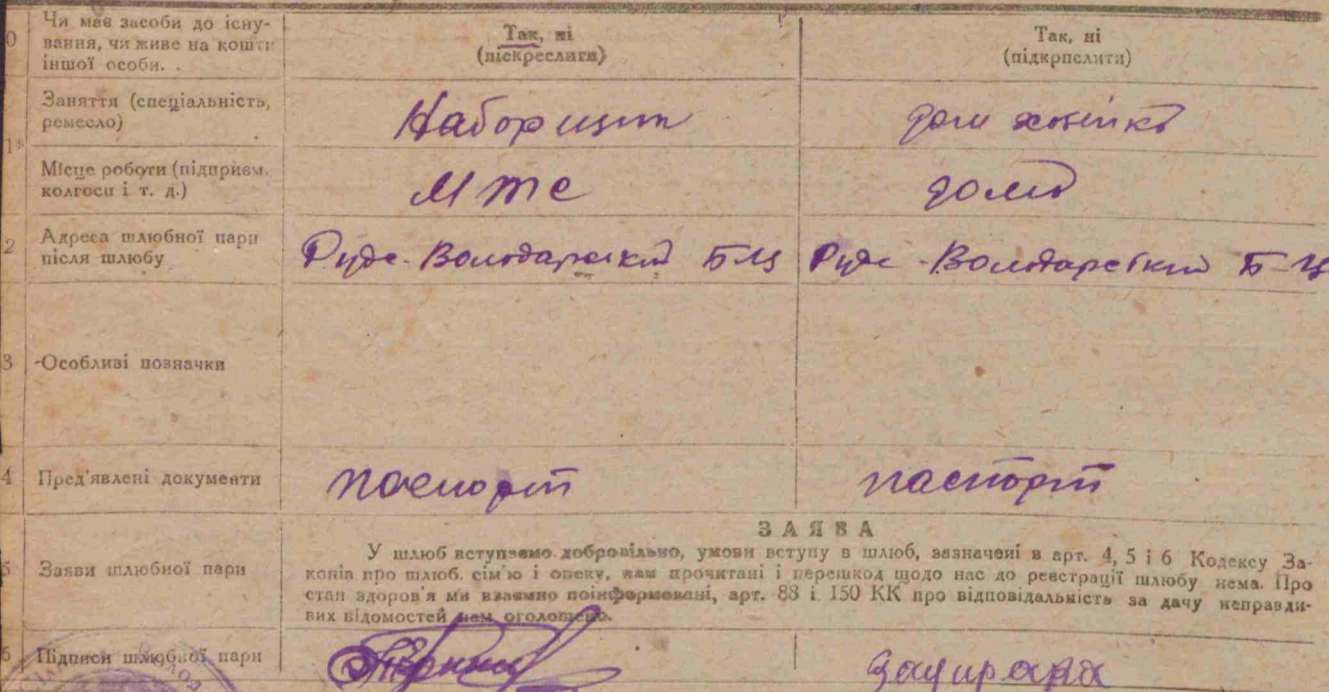 0 Чи має засоби до існу-
вання, чи живе на кошти
іншої особи. .
Так, ні
(підкреслити)
Так, ні
(підкрпслити)
1 Заняття (спеціальність,
ремесло)
Наборщик
дом хозяйка
Місце роботи (підприєм.
колгосп і т. д.)
МТС
дома
2 Адреса шлюбної пари
після шлюбу
Руде-Володарский БЦ
Руде-Володарский Б-Ц
3 Особливі позначки
4 Пред'явлені документи
паспорт
паспорт
5 Заяви шлюбної пари
ЗАЯВА
У шлюб вступаємо добровільно, умови вступу в шлюб, зазначені в арт. 4, 5 і 6 Кодексу За-
конів про шлюб. сім'ю і опеку, нам прочитані і перешкод щодо нас до реєстрації шлюбу нема. Про
стан здоров'я ми взаємно поінформовані, арт. 88 і 150 КК про відповідальність за дачу неправди-
вих відомостей нам оголошено.
6 Підписи шлюбної пари